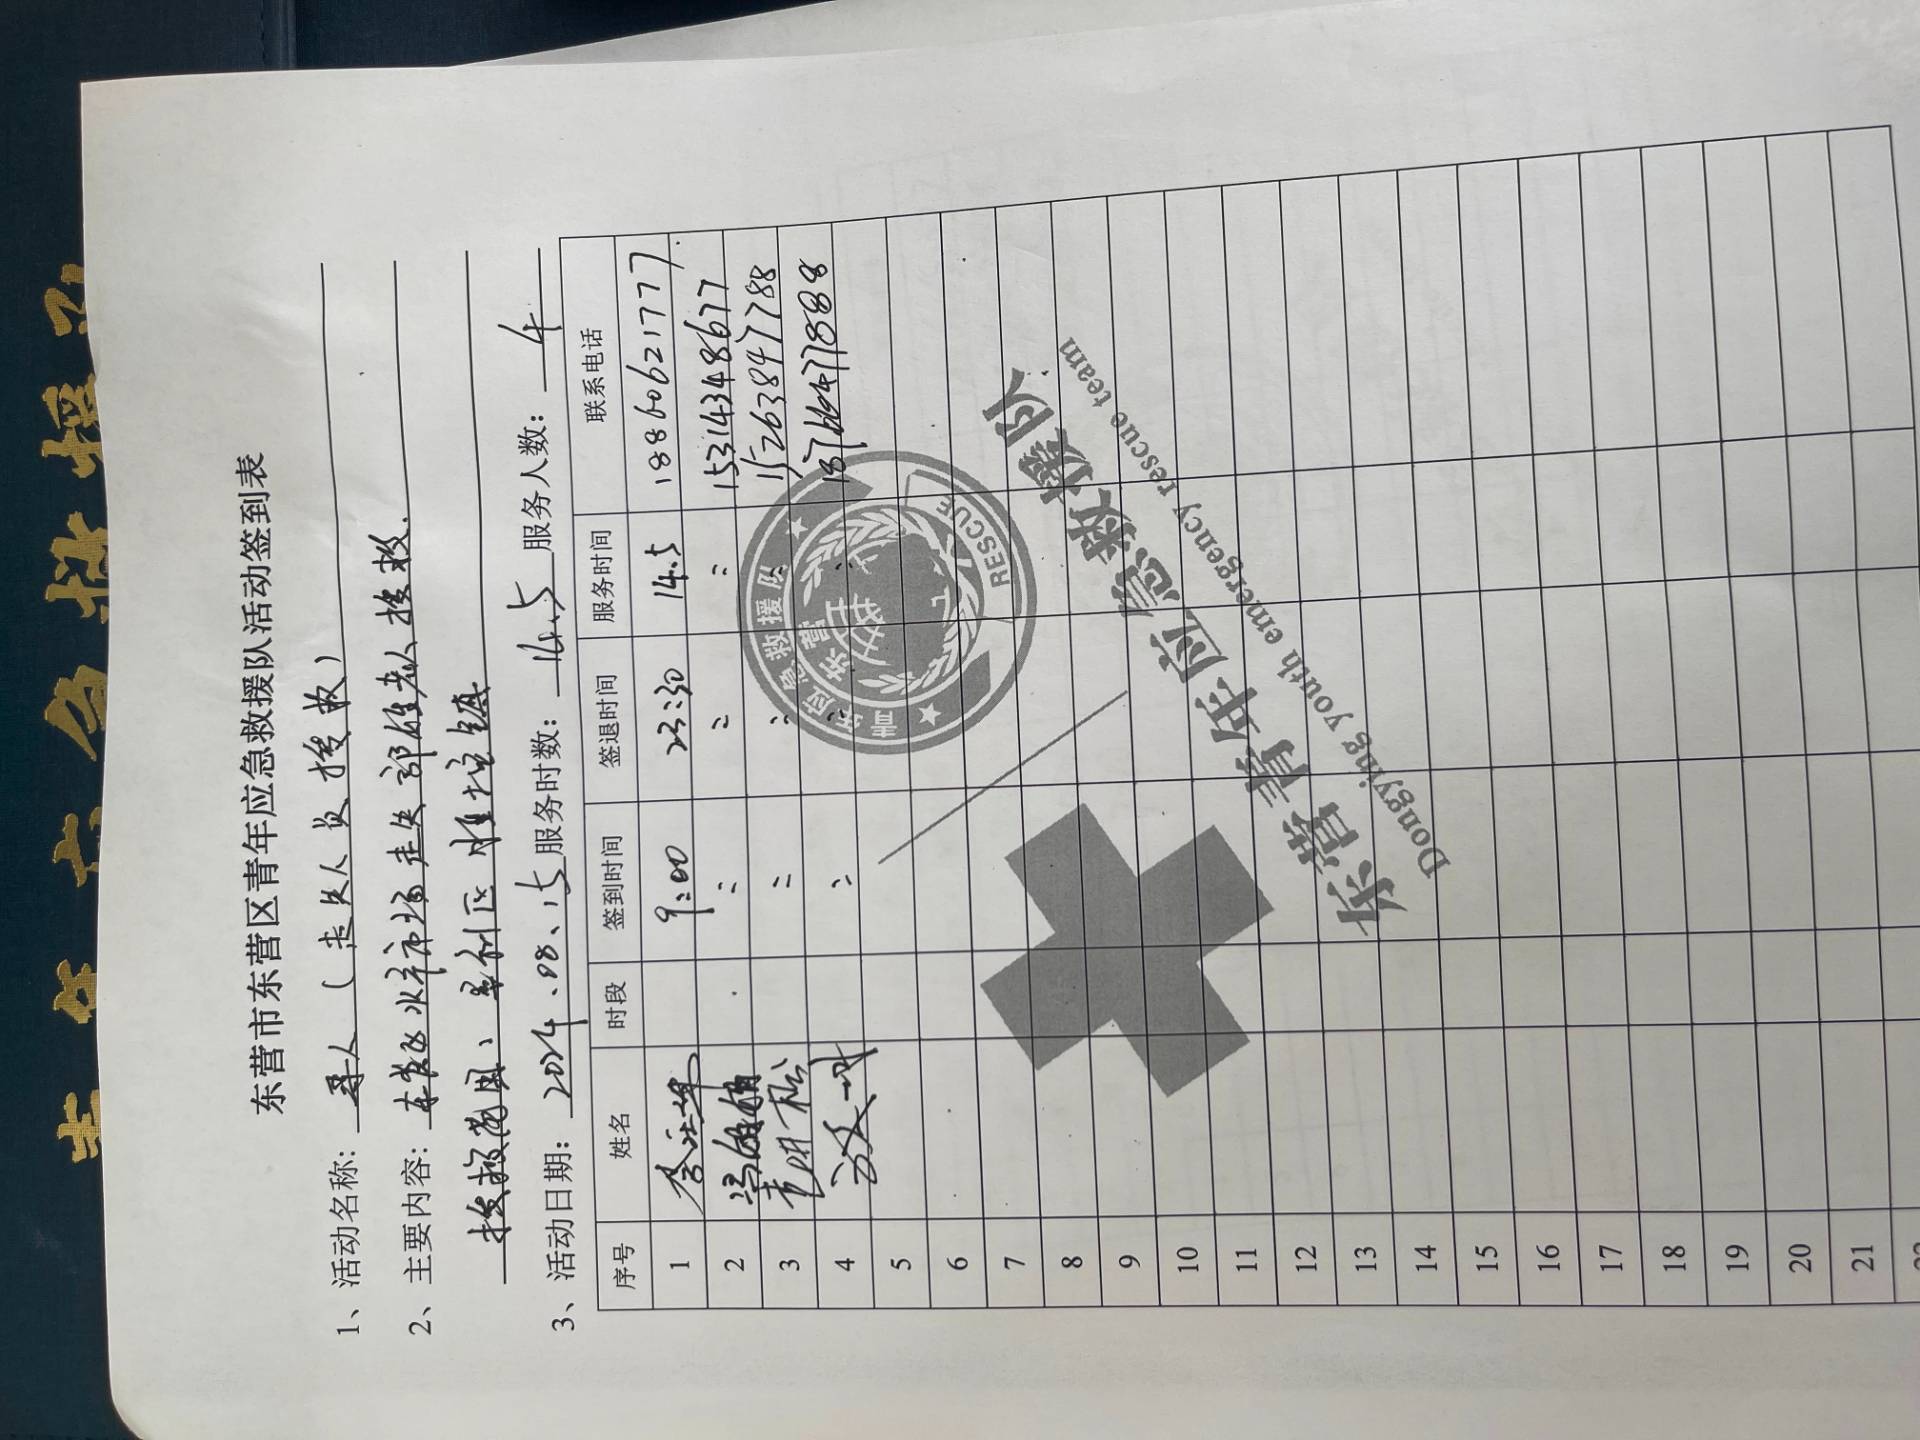 东营市东营区青年应急救援队活动签到表
1、活动名称: 寻人(走失人员搜救)
2、主要内容: 水洋市场走失郭维老人搜救.
搜救范围: 垦利区 胜坨镇
3、活动日期: 2024.08.15 服务时数: 14.5 服务人数: 4
序号 姓名 时段 签到时间 签退时间 服务时间 联系电话
1 9:00 23:30 14.5 18860621777
2 〃 〃 〃 15314348677
3 〃 〃 〃 15263847788
4 〃 〃 〃
5
6
7
8
9
10
11
12
13
14
15
16
17
18
19
20
21
青年应急救援队
东营
RESCUE
东营青年应急救援队
Dongying youth emergency rescue team